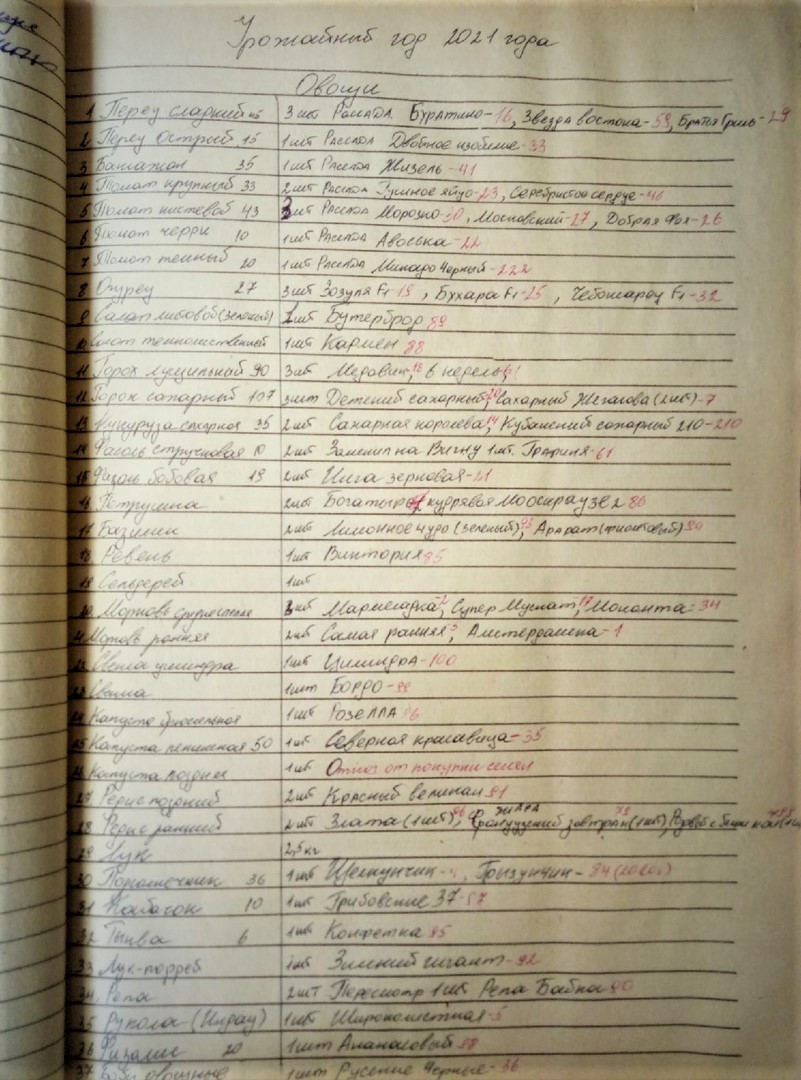 Урожайный год 2021 года
Овощи
1 Перец сладкий 3 шт Рассада Буратино-16, Звезда востока-59, Братья Гримм-29
2 Перец острый 15 1шт Рассада Двойное изобилие-33
3 Баклажан 35 1шт Рассада Жизель-41
4 Томат крупный 33 2шт Рассада Гусиное яйцо-23, Серебристое сердце-46
5 Томат кистевой 43 3шт Рассада Морозко-30, Московский-27, Добрая Фея-26
6 Томат черри 10 1шт Рассада Авоська-22
7 Томат темный 20 1шт Рассада Черный-222
8 Огурец 27 3шт Зозуля F1-19, Бухара F1-25, Чебоксарец F1-32
9 Салат листовой (зеленый) 1шт Бутерброд 89
10 Салат темнолиственный 1шт Кармен 88
11 Горох лущильный 90 3шт Медовик,
12 Горох сахарный 107 3шт Детский сахарный,20 Сахарный Жегалова (2шт)-7
13 Кукуруза сахарная 35 2шт Сахарная королева14, Кубанский сахарный 210-210
14 Фасоль стручковая 10 2шт Замена на Вигну 1шт. Графиня-61
15 Фасоль бобовая 19 2шт Нига зерновая-21
16 Петрушка 2шт Богатырь кудрявая Мооскраузе 2 86
17 Базилик 2шт Лимонное чудо (зеленый)93, Арарат (фиолетовый)
18 Ревень 1шт Виктория 95
19 Сельдерей 1шт
20 Морковь среднеспелая 3шт Мармеладка2, Супер Мускат17, Монанта-34
21 Морковь ранняя 2шт Самая ранняя3, Амстердамска-1
22 Свекла цилиндра 1шт Цилиндра-100
23 Свекла 1шт Бордо-99
24 Капуста брюссельная 1шт Розелла 96
25 Капуста пекинская 50 1шт Северная красавица-35
26 Капуста поздняя 1шт Отказ от покупки семян
27 Редис поздний 2шт Красный великан 91
28 Редис ранний 2шт Злата (1шт)96, Жара Французский завтрак (1шт),
29 Лук 2,5кг
30 36 1шт Щелкунчик, Грызунчик-94 (2020г)
31 Кабачок 10 1шт Грибовские 37-87
32 Тыква 6 1шт Конфетка 85
33 Лук-поррей 1шт Зимний гигант-92
34 Репа 2шт Пересмотр 1шт Репа Бабка 90
35 Рукола (Индау) 1шт Широколистная-5
36 Физалис 20 1шт Ананасовый 98
37 Бобы овощные 1шт Русские Черные-36